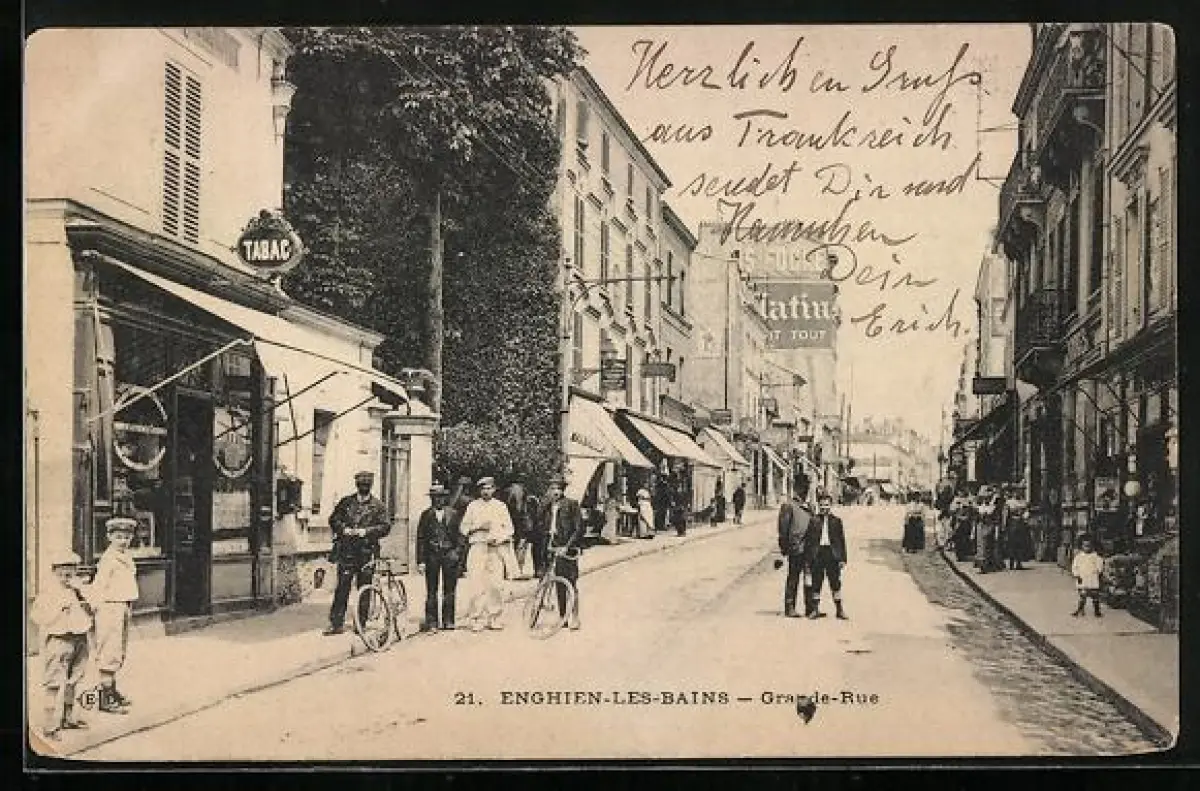 Herzlichen Gruß
aus Frankreich
sendet Dir und
Hannchen
Dein
Erich.
TABAC
Matin
IT TOUT
ELD
21. ENGHIEN-LES-BAINS — Grande-Rue